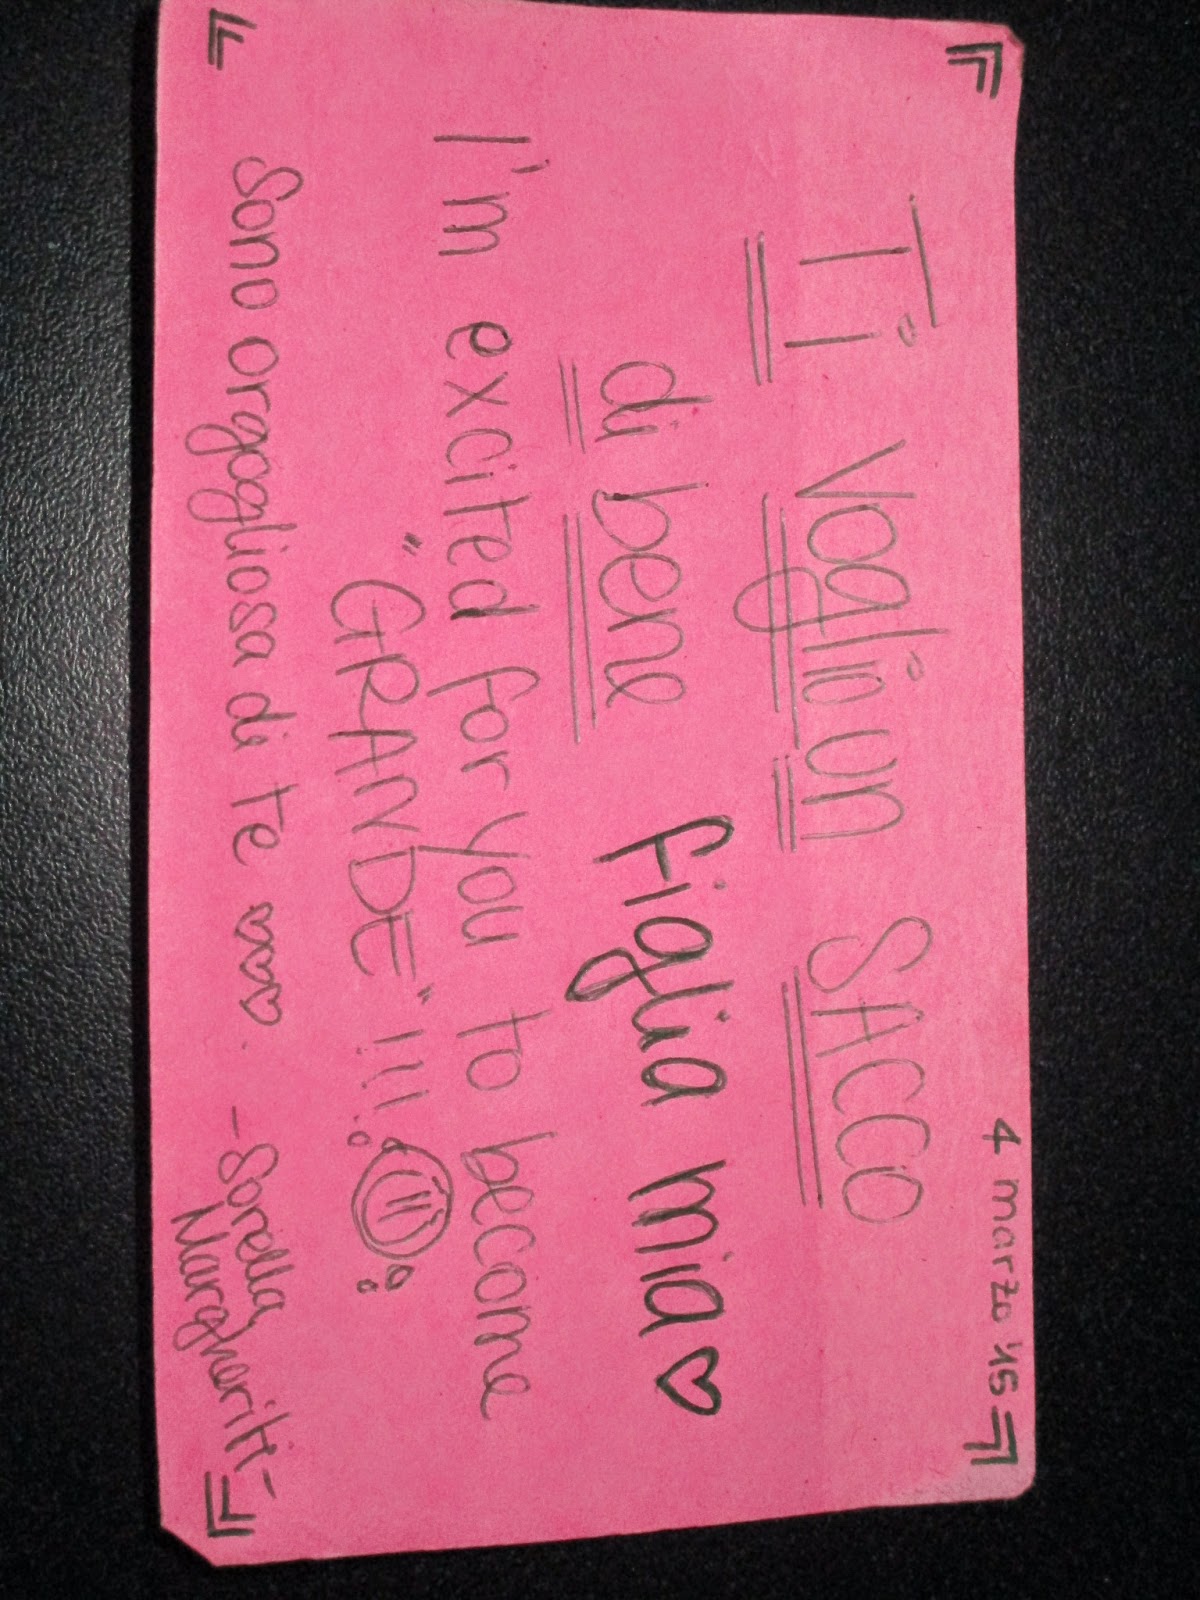 4 marzo '15
Ti voglio un SACCO
di bene figlia mia ♡
I'm excited for you to become
"GRANDE" !!!
Sono orgogliosa di te
-Sorella